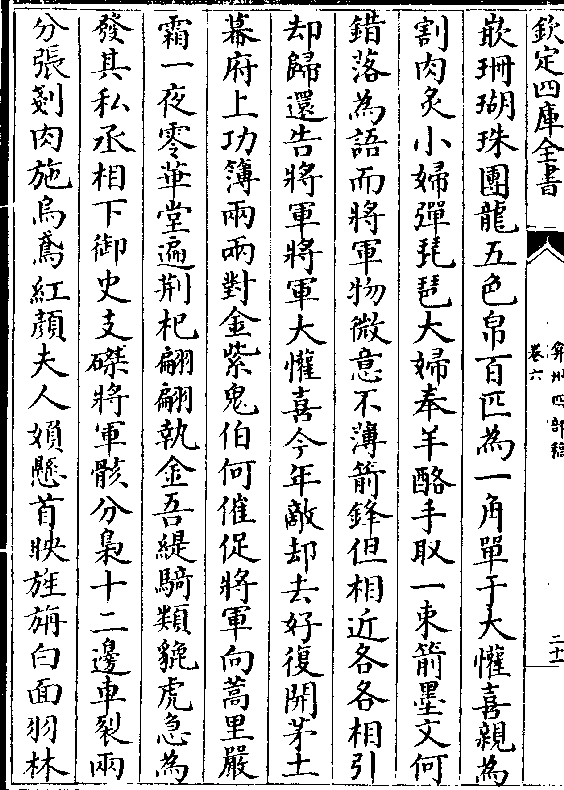 欽定四庫全書
弇州四部稿
卷六
二十一
嵌珊瑚珠團龍五色帛百匹為一角單于大懽喜親為
割肉炙小婦彈琵琶大婦奉羊酪手取一束箭墨文何
錯落為語而將軍物微意不薄箭鋒但相近各各相引
却歸還告將軍將軍大懽喜今年敵却去好復開茅土
幕府上功簿兩兩對金紫鬼伯何催促將軍向蒿里嚴
霜一夜零華堂遍荆杞翩翩執金吾緹騎類貔虎急為
發其私丞相下御史支磔將軍骸分梟十二邊車裂兩
分張剗肉施烏鳶紅顏夫人頭懸首映旌旃白面羽林